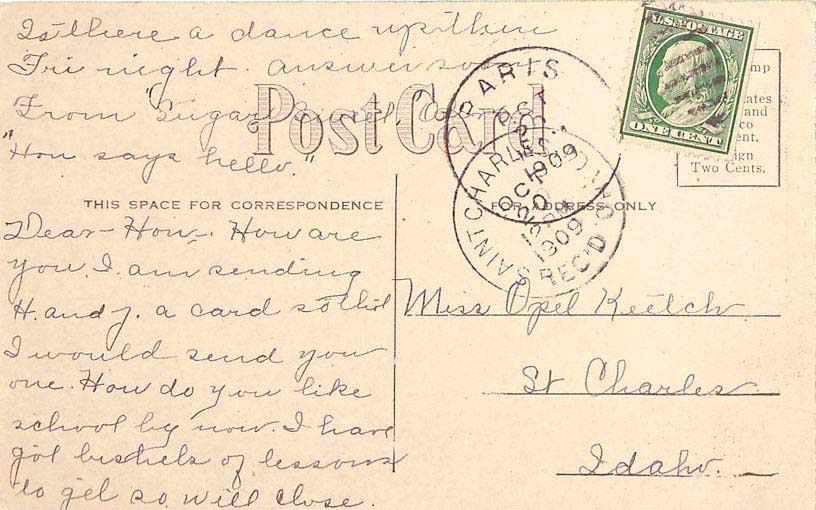 Is there a dance up then
Fri night. answer soon
From "Sugar
"Hon says hello."
Post Card
U.S. POSTAGE
ONE CENT
PARIS
OCT
1909
SAINT CHARLES, IDAHO
OCT
20
1909
REC'D.
Two Cents.
THIS SPACE FOR CORRESPONDENCE
FOR ADDRESS ONLY
Dear Hon. How are
you. I am sending
H. and J. a card so thot
I would send you
one. How do you like
school by now. I have
got bushels of lessons
to get so will close.
Miss Opel Keetch
St Charles
Idaho.